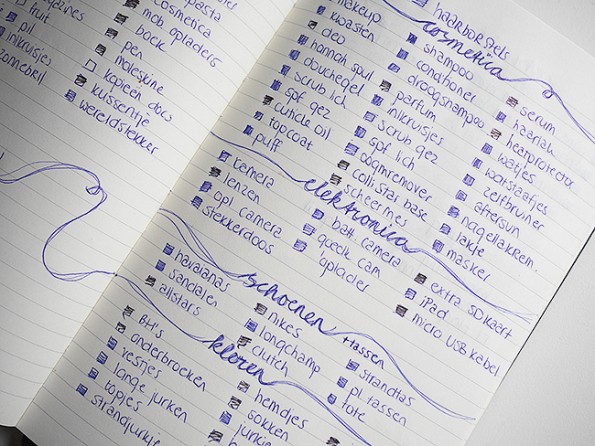 fruit
pil
zonnebril
pasta
cosmetica
mob. opladers
boek
pen
moleskine
kopieën docs
kussentje
wereldstekker
cosmetica
makeup
kwasten
deo
douchegel
scrub lich.
spf gez
cuticle oil
topcoat
puff
haarborstels
shampoo
conditioner
droogshampoo
parfum
inkruisjes
scrub gez
spf lich
oogmremover
collistar base
scheermes
serum
haarlak
heatprotector
watjes
wattstaafjes
zelfbruiner
aftersun
nagellakrem.
lakje
masker
elektronica
camera
lenzen
opl camera
stekkerdoos
batt. camera
queck cam
oplader
extra SD kaart
iPad
micro USB kabel
schoenen +tassen
havaianas
sandalen
allstars
nikes
longchamp
clutch
strandtas
pl. tassen
tote
kleren
BH's
onderbroeken
vestjes
lange jurken
topjes
strandjurkje
hemdjes
sokken